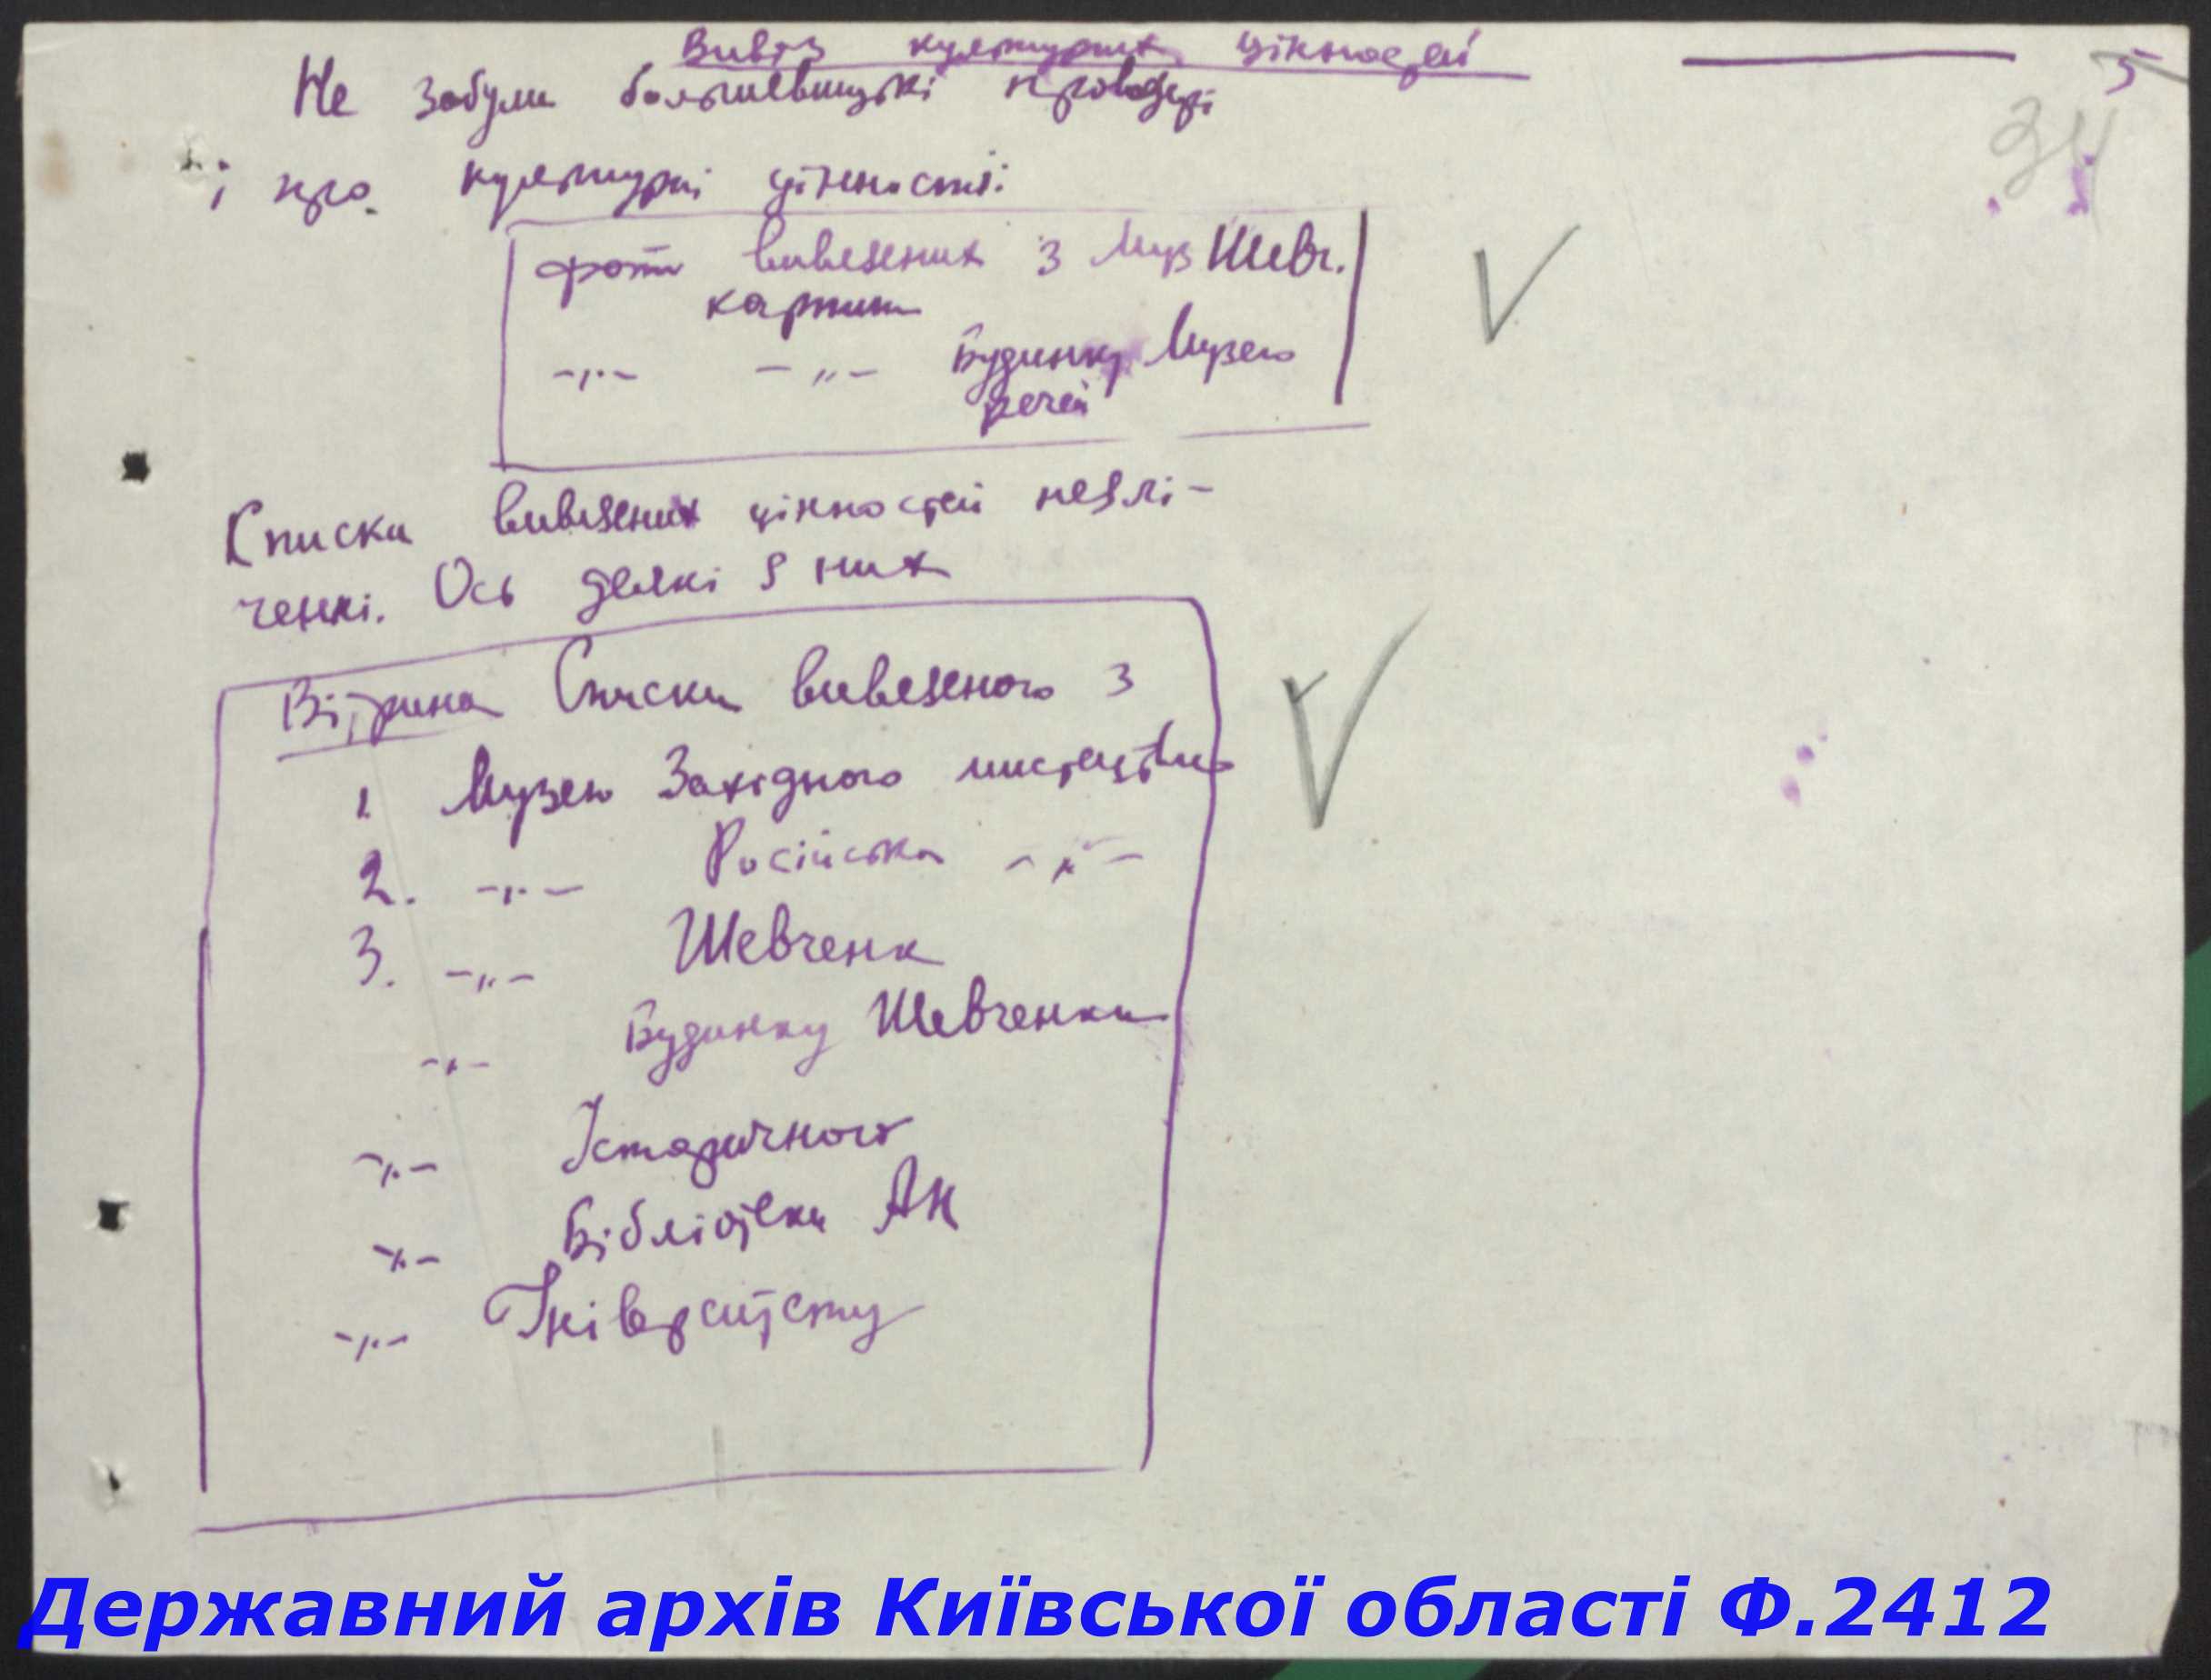 Вивіз культурних цінностей
5
Не забули большевицькі проводирі
34
і про культурні цінності:
фото вивезених з Муз Шевч.
картин
-„- -„- Будинку Музею
речей
Списки вивезених цінностей незлі-
ченні. Ось деякі з них
Вітрина Списки вивезеного з
1. Музею Західного мистецтва
2. -„- Російська -„-
3. -„- Шевченк
-„- Будинку Шевченка
-„- Історичного
-„- Бібліотеки АН
-„- Університету
Державний архів Київської області Ф.2412